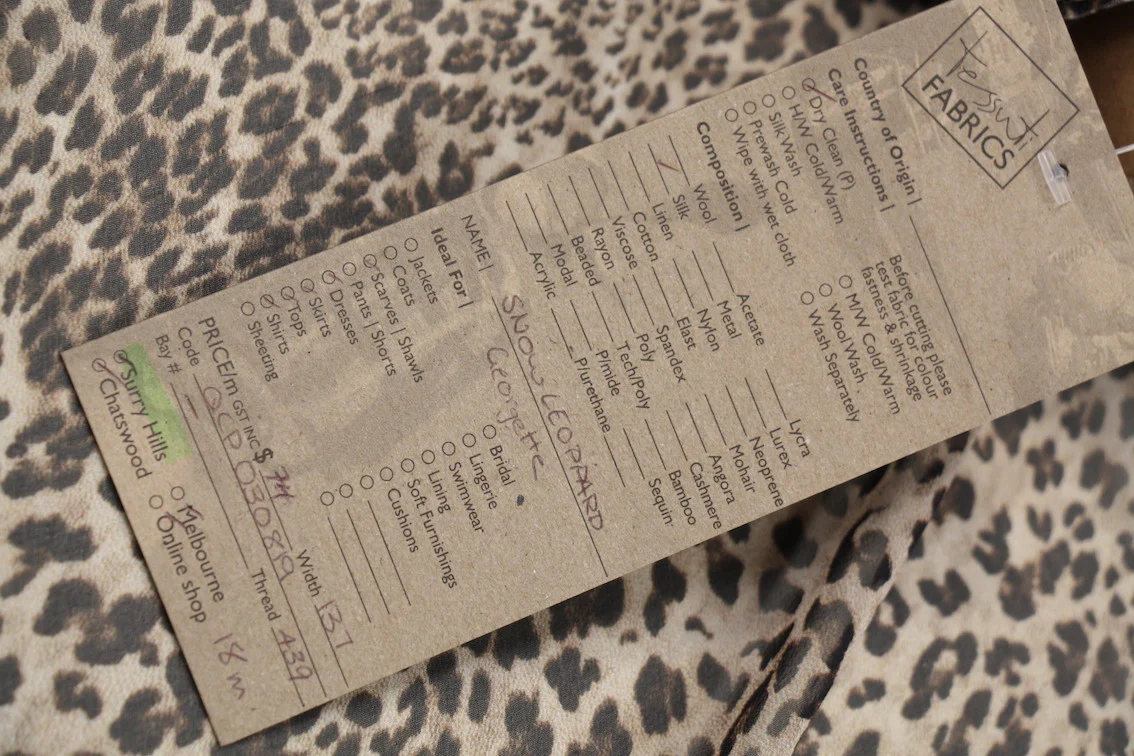 Tessuti
FABRICS
Country of Origin |
Care Instructions |
Dry Clean (P)
H/W Cold/Warm
Silk Wash
Prewash Cold
Wipe with wet cloth
Before cutting please
test fabric for colour
fastness & shrinkage
M/W Cold/Warm
Wool Wash
Wash Separately
Composition |
Wool
Silk
Linen
Cotton
Viscose
Rayon
Beaded
Modal
Acrylic
Acetate
Metal
Nylon
Elast
Spandex
Poly
Tech/Poly
P/mide
P/urethane
Lycra
Lurex
Neoprene
Mohair
Angora
Cashmere
Bamboo
Sequin
NAME | SNOW LEOPPARD
Georgette
Ideal For |
Jackets
Coats
Scarves | Shawls
Pants | Shorts
Dresses
Skirts
Tops
Shirts
Sheeting
Bridal
Lingerie
Swimwear
Lining
Soft Furnishings
Cushions
PRICE/m GST INC $ 74 Width 137
Code OCD030819 Thread 439
Bay # —
Surry Hills
Chatswood
Melbourne
Online shop
18 m